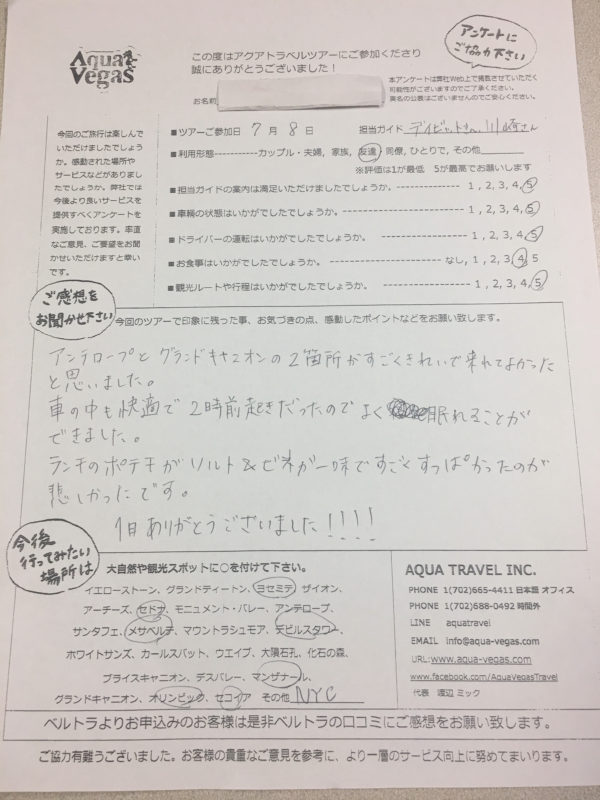 Aqua
Vegas
この度はアクアトラベルツアーにご参加くださり
誠にありがとうございました！
アンケートに
ご協力下さい
本アンケートは弊社Web上で掲載させていただく
可能性がございますのでご了承ください。
実名の公表はございませんのでご安心ください。
お名前
今回のご旅行は楽しんで
いただけましたでしょう
か。感動された場所や
サービスなどがありまし
たでしょうか。弊社では
今後より良いサービスを
提供すべくアンケートを
実施しております。率直
なご意見、ご要望をお聞
かせいただけますと幸い
です。
■ツアーご参加日 7 月 8 日 担当ガイド デイビットさん 川崎さん
■利用形態-----------カップル・夫婦, 家族, 友達・同僚, ひとりで, その他
※評価は1が最低 5が最高でお願いします
■担当ガイドの案内は満足いただけましたでしょうか。---------------- 1, 2, 3, 4, 5
■車輌の状態はいかがでしたでしょうか。---------------- 1, 2, 3, 4, 5
■ドライバーの運転はいかがでしたでしょうか。---------------- 1, 2, 3, 4, 5
■お食事はいかがでしたでしょうか。---------------- なし, 1, 2, 3, 4, 5
■観光ルートや行程はいかがでしたでしょうか。---------------- 1, 2, 3, 4, 5
ご感想を
お聞かせ下さい
今回のツアーで印象に残った事、お気づきの点、感動したポイントなどをお願い致します。
アンテロープとグランドキャニオンの2箇所がすごくきれいで来れてよかった
と思いました。
車の中も快適で2時前起きだったのでよく眠れることが
できました。
ランチのポテチがソルト&ビネガー味ですごくすっぱかったのが
悲しかったです。
1日ありがとうございました!!!!
今後
行ってみたい
場所は
大自然や観光スポットに○を付けて下さい。
イエローストーン、グランドティートン、ヨセミテ ザイオン、
アーチーズ、セドナ、モニュメント・バレー、アンテロープ、
サンタフェ、メサベルデ、マウントラシュモア、デビルスタワー、
ホワイトサンズ、カールスバット、ウエイブ、大隕石孔、化石の森、
ブライスキャニオン、デスバレー、マンザナール、
グランドキャニオン、オリンピック、セコイア その他 NYC
AQUA TRAVEL INC.
PHONE 1(702)665-4411 日本語 オフィス
PHONE 1(702)688-0492 時間外
LINE aquatravel
EMAIL info@aqua-vegas.com
URL:www.aqua-vegas.com
www.facebook.com/AquaVegasTravel
代表 渡辺 ミック
ベルトラよりお申込みのお客様は是非ベルトラの口コミにご感想をお願い致します。
ご協力有難うございました。お客様の貴重なご意見を参考に、より一層のサービス向上に努めてまいります。